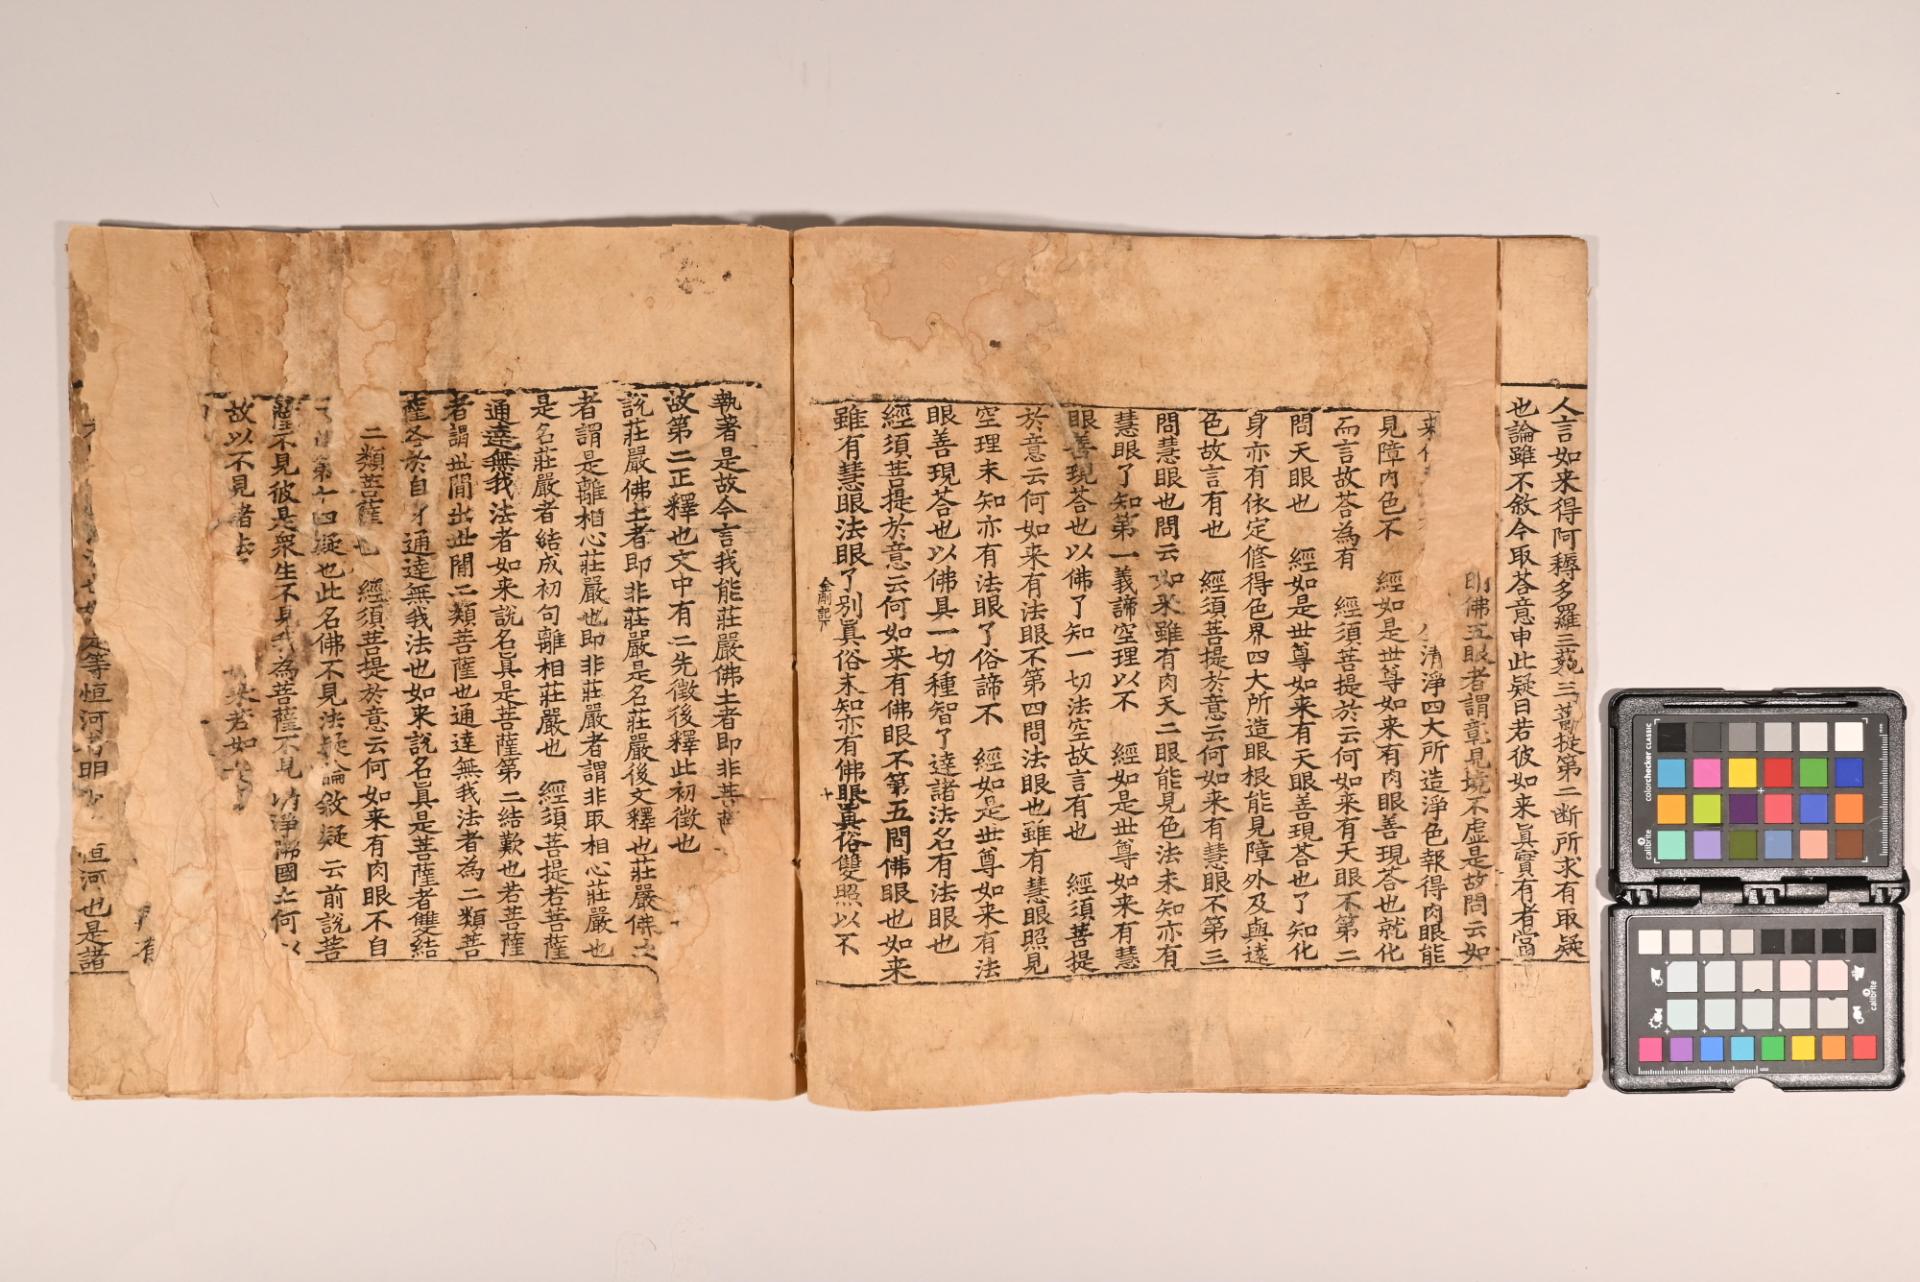 人言如来得阿耨多羅三藐三菩提第二断所求有取疑
也論雖不敘今取荅意申此疑曰若彼如来眞實有者當
即佛五眼者謂彰見境不虛是故問云如
来
清淨四大所造淨色報得肉眼能
見障内色不　經如是世尊如来有肉眼善現荅也就化
而言故荅為有　經須菩提於云何如来有天眼不第二
問天眼也　經如是世尊如来有天眼善現荅也了知化
身亦有依定修得色界四大所造眼根能見障外及與遠
色故言有也　經須菩提於意云何如来有慧眼不第三
問慧眼也問云如来雖有肉天二眼能見色法未知亦有
慧眼了知第一義諦空理以不　經如是世尊如来有慧
眼善現荅也以佛了知一切法空故言有也　經須菩提
於意云何如来有法眼不第四問法眼也雖有慧眼照見
空理未知亦有法眼了俗諦不　經如是世尊如来有法
眼善現荅也以佛具一切種智了達諸法名有法眼也
經須菩提於意云何如来有佛眼不第五問佛眼也如来
雖有慧眼法眼了別眞俗未知亦有佛眼眞俗雙照以不
執著是故今言我能莊嚴佛土者即非菩
故第二正釋也文中有二先徵後釋此初徵也
說莊嚴佛土者即非莊嚴是名莊嚴後文釋也莊嚴佛土
者謂是離相心莊嚴也即非莊嚴者謂非取相心莊嚴也
是名莊嚴者結成初句離相莊嚴也　經須菩提若菩薩
通達無我法者如来說名眞是菩薩第二結歎也若菩薩
者謂世間出世間二類菩薩也通達無我法者為二類菩
薩各於自身通達無我法也如来說名眞是菩薩者雙結
二類菩薩也　經須菩提於意云何如来有肉眼不自
第十四疑也此名佛不見法疑論敘疑云前說菩
薩不見彼是衆生不見我為菩薩不見清淨佛國土何以
故以不見諸法　来若如
有
等恒河者明　恒河也是諸